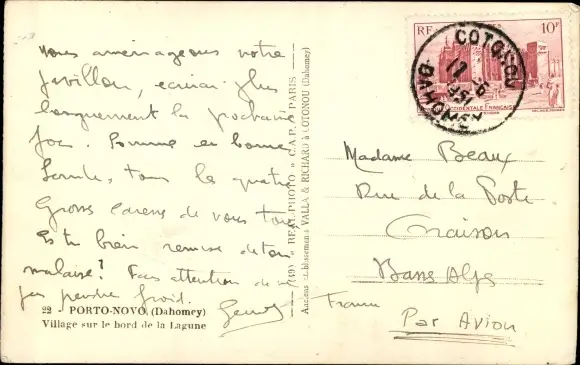 Nous aménageons notre
pavillon, écrirai plus
longuement la prochaine
fois. Sommes en bonne
Santé, tous les quatre
Grosses caresses de nous tous
Es tu bien remise de ton
malaise? Fais attention de ne
pas prendre froid.
22 - PORTO-NOVO (Dahomey)
Village sur le bord de la Lagune
(49) - REAL-PHOTO - C.A.P. - PARIS -
Anciens établissements VALLA & RICHARD à COTONOU (Dahomey)
RF
10F
OCCIDENTALE FRANÇAISE
COTONOU
DAHOMEY
Madame Beaux
Rue de la Poste
Oraison
Basses Alpes
France
Par Avion